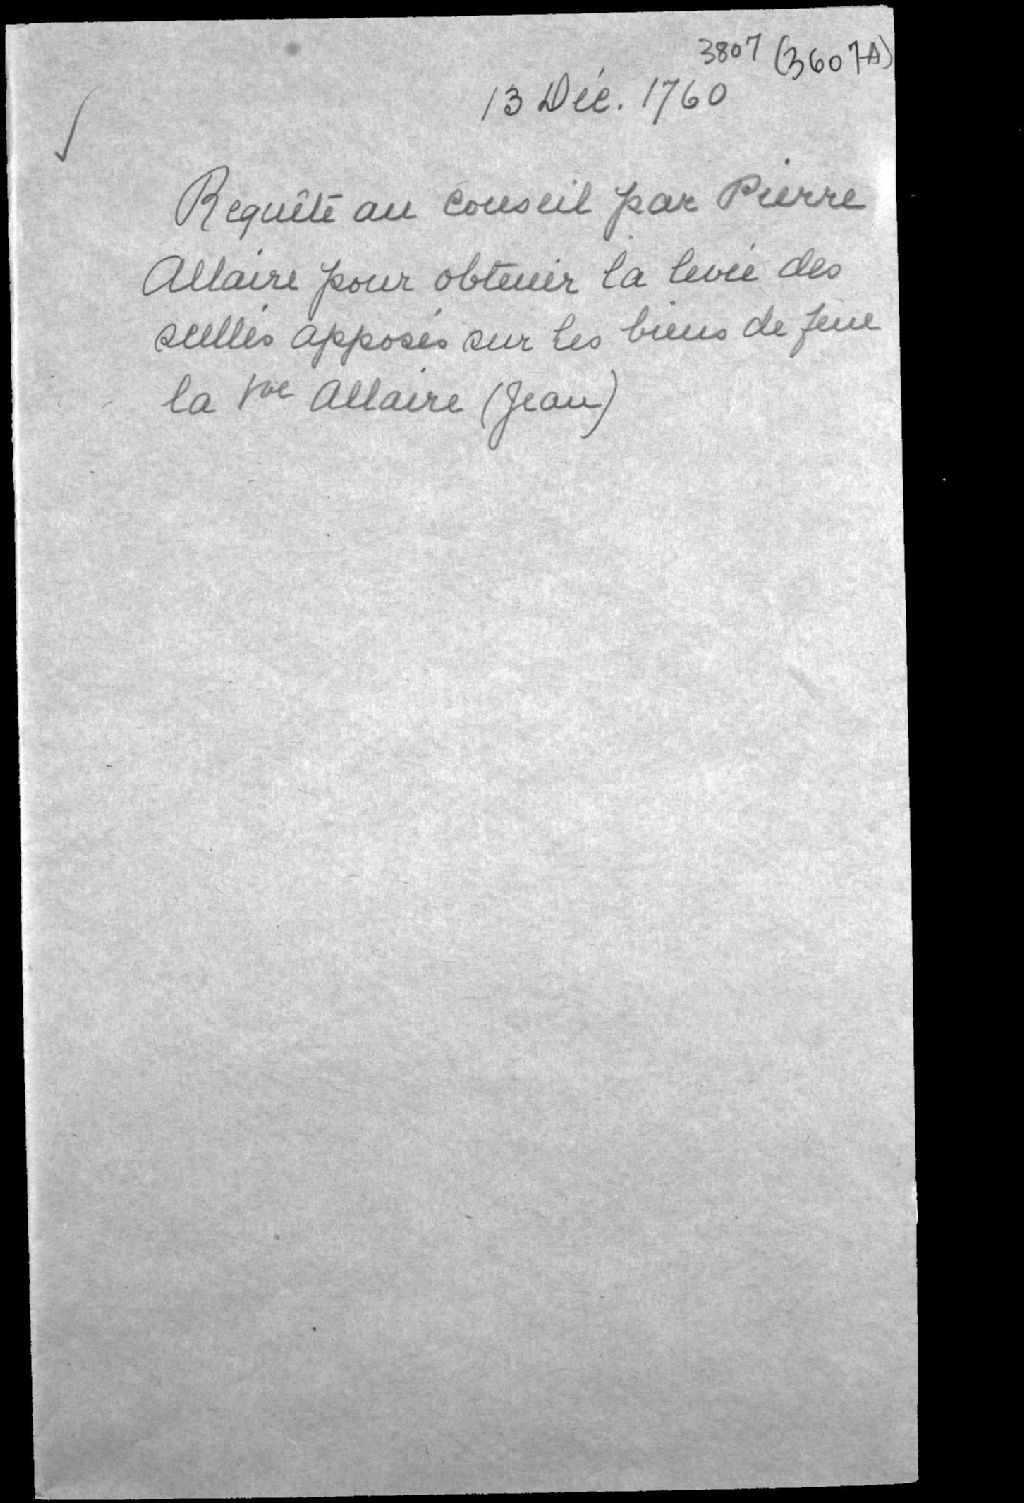 3807 (3607A)
13 Déc. 1760
Requête au Conseil par Pierre
Allaire pour obtenir la levée des
scellés apposés sur les biens de feue
la Vve Allaire (Jean)